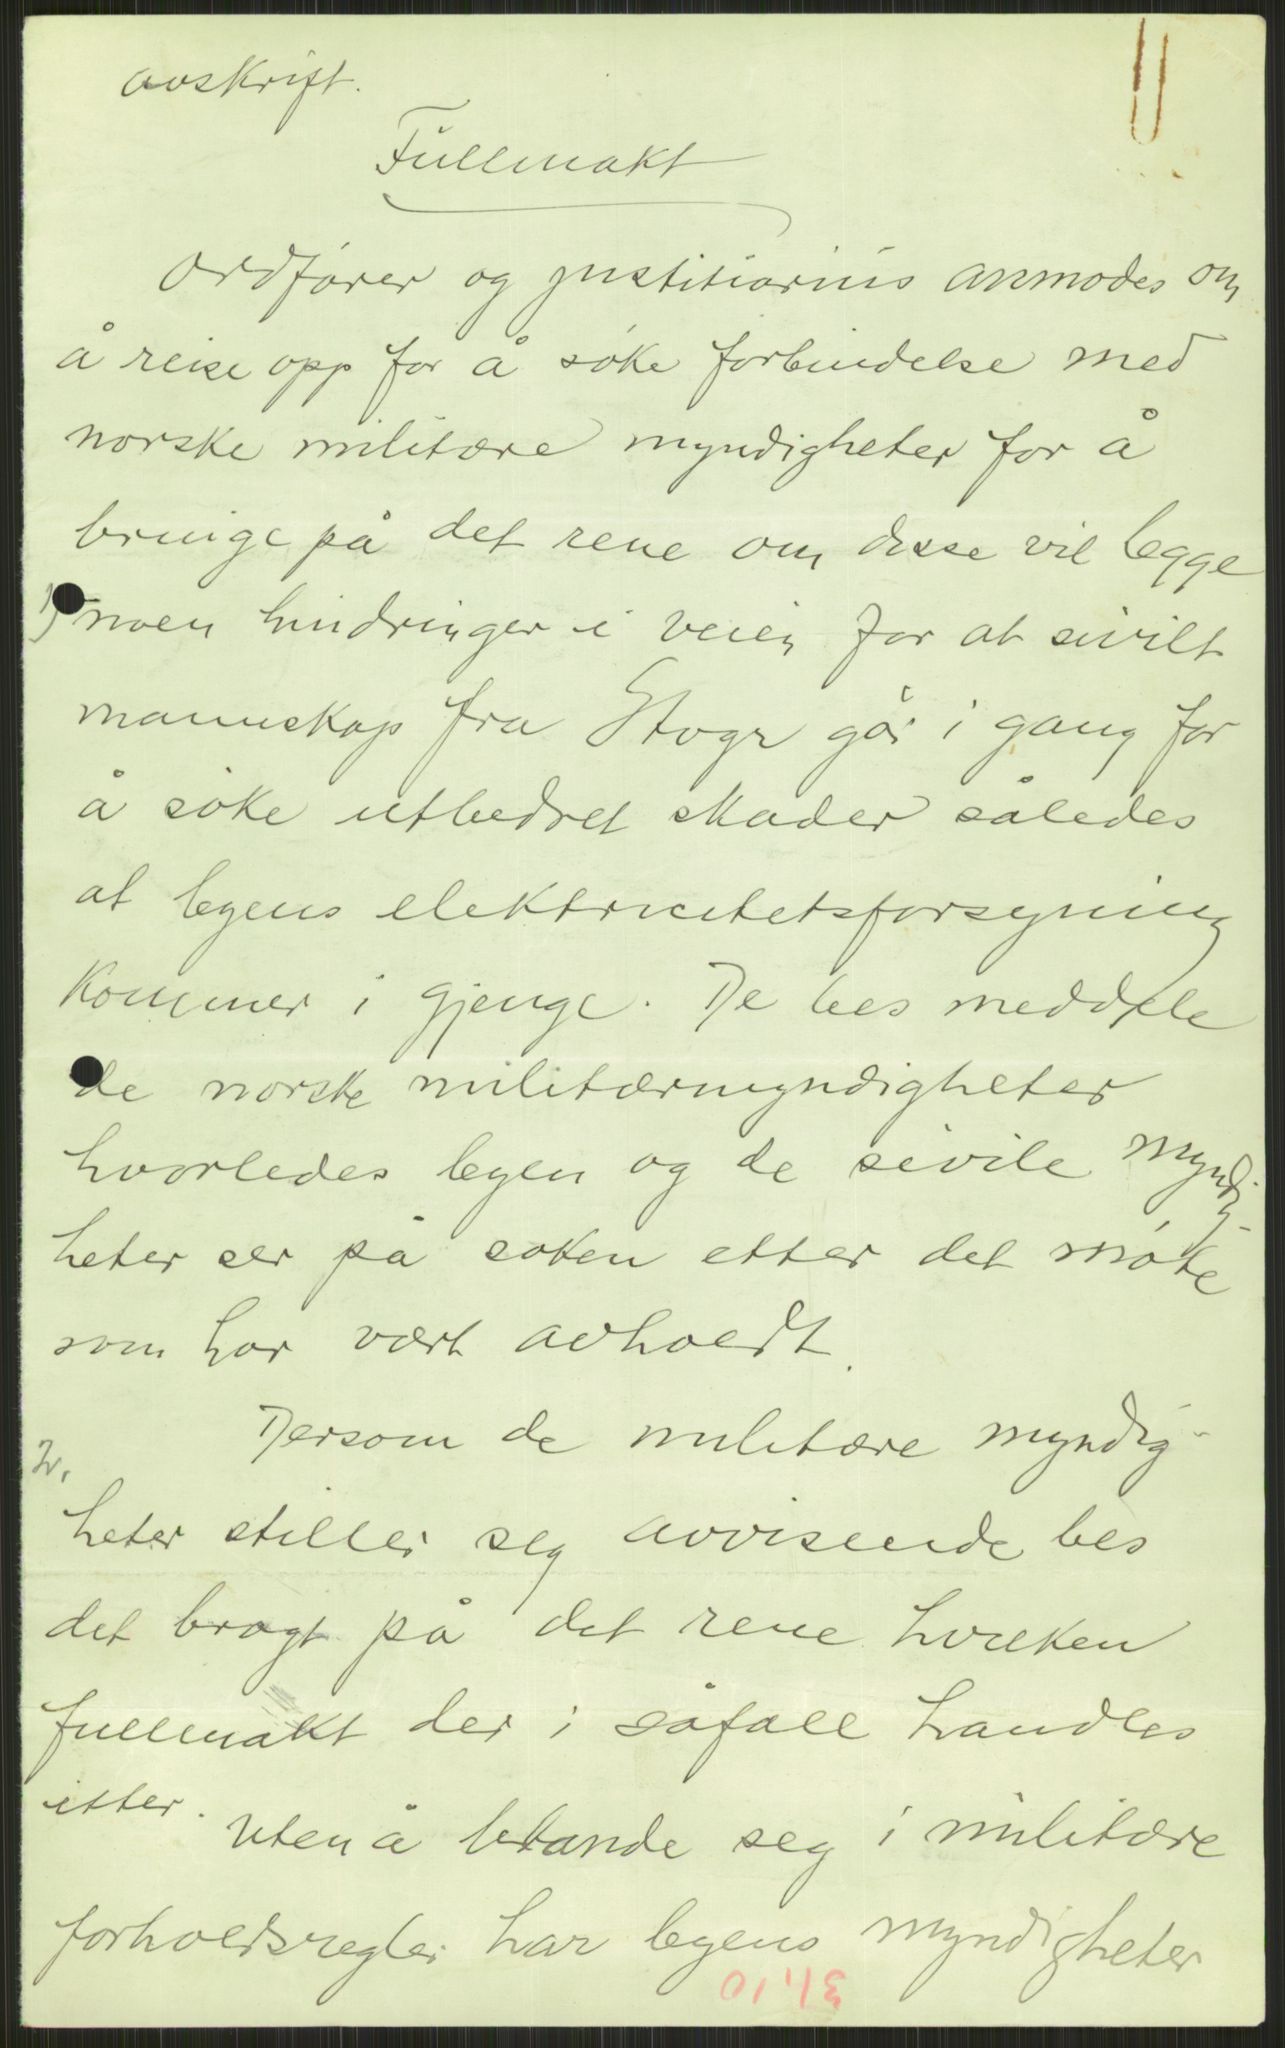 avskrift.
Fullmakt
Ordfører og justitiarius anmodes om
å reise opp for å søke forbindelse med
norske militære myndigheter for å
bringe på det rene om disse vil legge
1) noen hindringer i veien for at sivilt
mannskap fra går i gang for
å søke utbedret skader således
at byens elektricitetsforsyning
kommer i gjenge. De bes meddele
de norske militærmyndigheter
hvorledes byen og de sivile myndig-
heter ser på saken etter det møte
som har vært avholdt.
Dersom de militære myndig-
2.
heter stiller seg avvisende bes
det bragt på det rene hvilken
fullmakt der i såfall handles
etter. Uten å blande seg i militære
forholdsregler har byens myndigheter